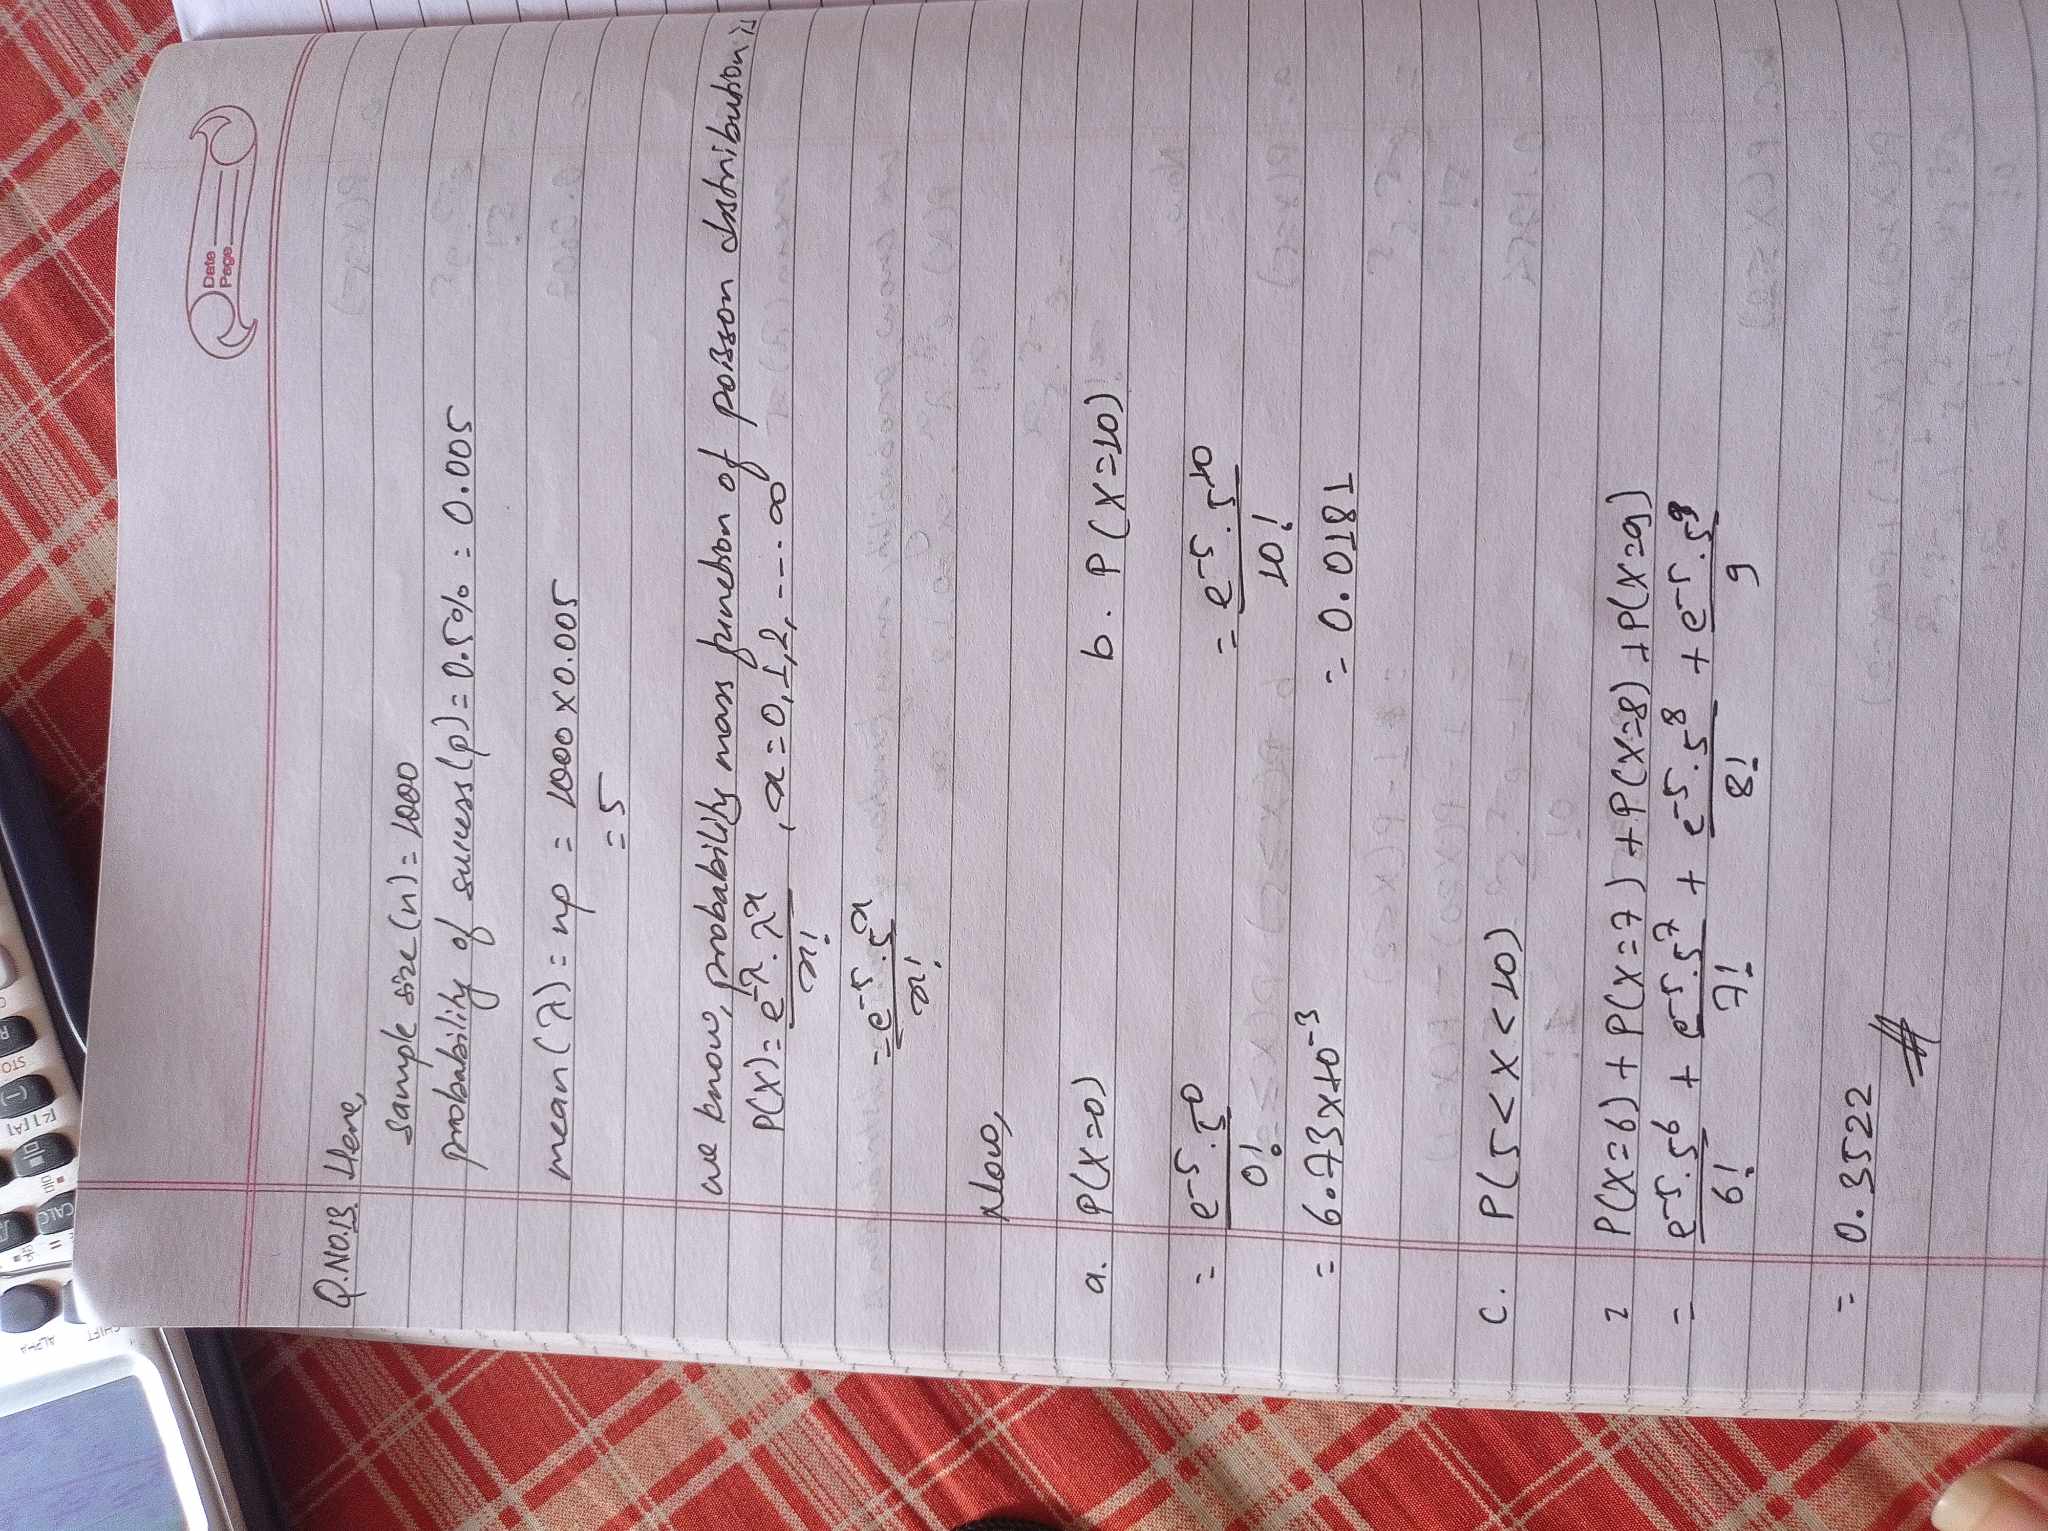 SHIFT
ALPHA
CALC
STO
(-)
Date
Page
Q.NO.13. Here,
sample size (n) = 1000
probability of success (p) = 0.5% = 0.005
mean (λ) = np = 1000 × 0.005
= 5
we know, probability mass function of poisson distribution is
P(X) = e^-λ . λ^x / x! , x = 0, 1, 2, ---- ∞
= e^-5 . 5^x / x!
Now,
a. P(X=0) b. P(X=10)
= e^-5 . 5^0 / 0! = e^-5 . 5^10 / 10!
= 6.73×10^-3 = 0.0181
c. P(5 < X < 10)
= P(X=6) + P(X=7) + P(X=8) + P(X=9)
= e^-5 . 5^6 / 6! + e^-5 . 5^7 / 7! + e^-5 . 5^8 / 8! + e^-5 . 5^9 / 9
= 0.3522